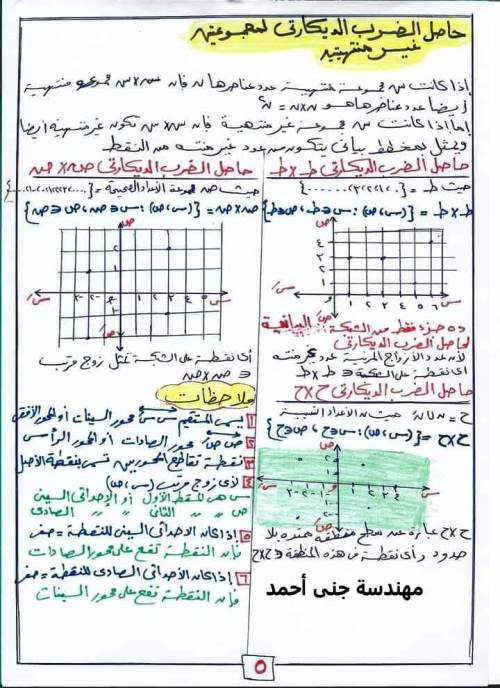 حاصل الضرب الديكارتى لمجموعتين
غير منتهيتين
إذا كانت س مجموعة منتهية عدد عناصرها ن فإن س×س مجموعة منتهية
أيضا عدد عناصرها هو ن×ن = ن٢
إما إذا كانت س مجموعة غير منتهية فإن س×س تكون غير منتهية أيضا
ويمثل بمخطط بيانى يتكون من عدد غير منته من النقط
حاصل الضرب الديكارتى ط×ط
حيث ط = {٠،١،٢،٣،......}
ط×ط = {(س،ص) : س∈ط، ص∈ط}
ص
٤
٣
٢
١
س
١ ٢ ٣ ٤ ٥ ٦
ده جزء فقط من الشبكة البيانية
لحاصل الضرب الديكارتى
لأن عدد الأزواج المرتبة عدد غير منته
أى نقطة على الشبكة ∈ ط×ط
حاصل الضرب الديكارتى ح×ح
ح×ح = {(س،ص) : س∈ح، ص∈ح}
ح×ح عبارة عن سطح ممتد بلا
حدود وأى نقطة فى هذه المنطقة ∈ ح×ح
حاصل الضرب الديكارتى ص×ص
حيث ص مجموعة الأعداد الصحيحة
ص×ص = {(س،ص) : س∈ص، ص∈ص}
أى نقطة على الشبكة تمثل زوج مرتب
∈ ص×ص
ملاحظات
١ يسمى المستقيم س س محور السينات أو المحور الأفقى
٢ ص ص محور الصادات أو المحور الرأسى
٣ نقطة تقاطع المحورين تسمى بنقطة الأصل
٤ لأى زوج مرتب (س،ص)
س هى المسقط الأول أو الإحداثى السينى
ص " " الثانى " " الصادى
٥ إذا كان الإحداثى السينى للنقطة = صفر
فإن النقطة تقع على محور الصادات
٦ إذا كان الإحداثى الصادى للنقطة = صفر
فإن النقطة تقع على محور السينات
مهندسة جنى أحمد
٥